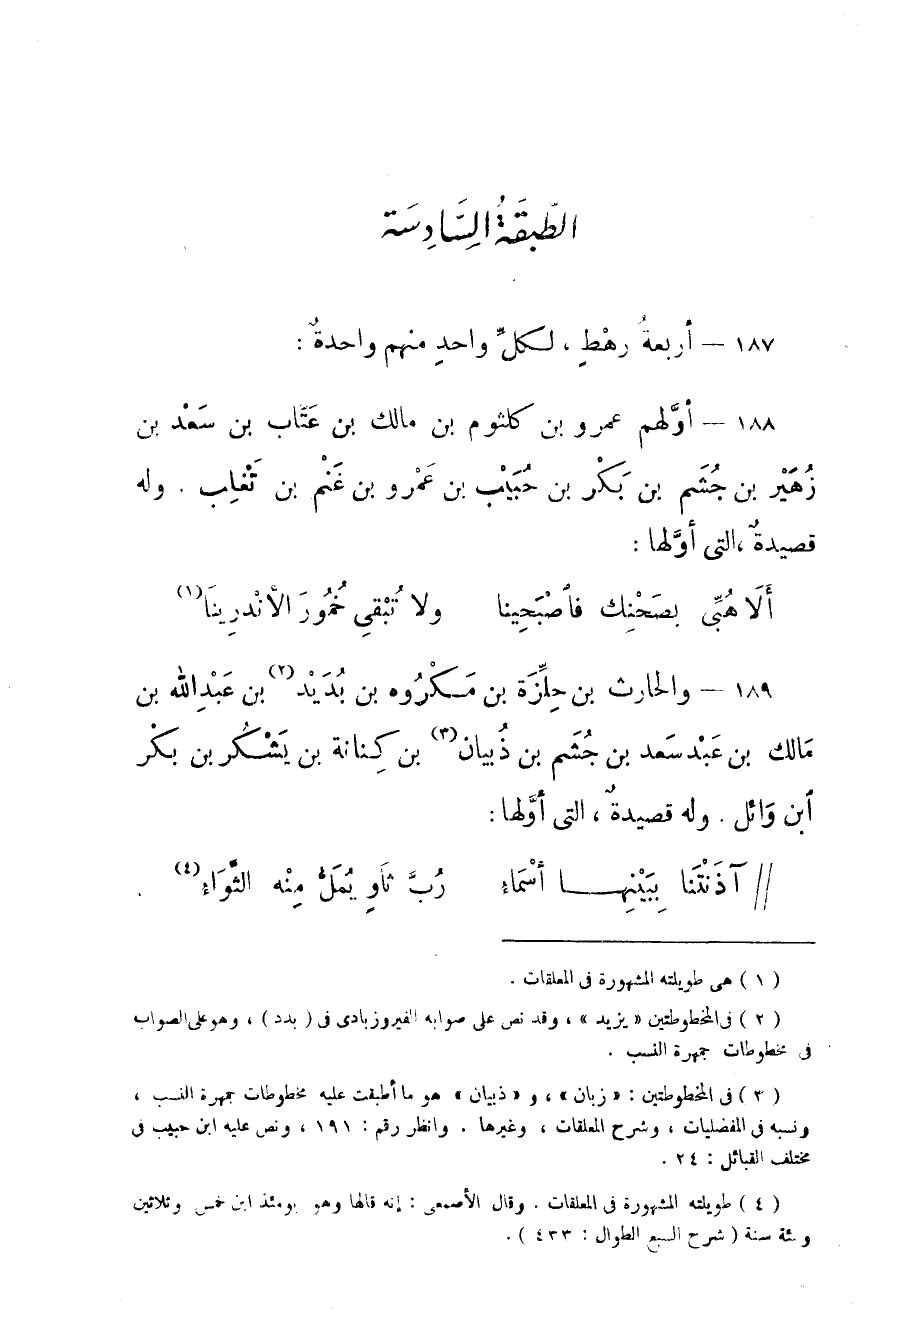 الطَّبقَةُ السَّادِسَة
١٨٧ — أربعةُ رهْطٍ ، لـكلِّ واحدٍ منهم واحدةٌ :
١٨٨ — أوَّلهم عمرو بن كلثوم بن مالك بن عَتَّاب بن سَعْد بن
زُهَيْر بن جُشَم بن بَكْر بن حُبَيْب بن عَمْرو بن غَنْم بن تَغْلِب . وله
قصيدةٌ ، التى أوَّلها :
أَلَا هُبِّى بصَحْنِك فاَصْبَحِينا ولا تُبْقِي خُمُورَ الأَنْدرِينَا(١)
١٨٩ — والحارث بن حِلِّزَة بن مَـكْرُوه بن بُدَيْد(٢) بن عَبْدِ الله بن
مَالك بن عَبْد سَعد بن جُشَم بن ذُبيان(٣) بن كِنانة بن يَشْكُر بن بَكْر
ٱبن وَائل . وله قصيدةٌ ، التى أوَّلها :
// آذَنَتْنَا بِبَيْنِهـــا أَسْمَاء رُبَّ ثَاوٍ يُمَلُّ مِنْه الثَّوَاء(٤) .
( ١ ) هى طويلته المشهورة فى المعلقات .
( ٢ ) فى المخطوطتين « يزيد » ، وقد نص على صوابه الفيروزبادى فى ( بدد ) ، وهو على الصواب
فى مخطوطات جمهرة النسب .
( ٣ ) فى المخطوطتين : « زبان » ، و « ذبيان » هو ما أطبقت عليه مخطوطات جمهرة النسب ،
ونسبه فى المفضليات ، وشرح المعلقات ، وغيرها . وانظر رقم : ١٩١ ، ونص عليه ابن حبيب فى
مختلف القبائل : ٢٤ .
( ٤ ) طويلته المشهورة فى المعلقات . وقال الأصمعى : إنه قالها وهو يومئذ ابن خمس وثلاثين
ومئة سنة ( شرح السبع الطوال : ٤٣٣ ) .